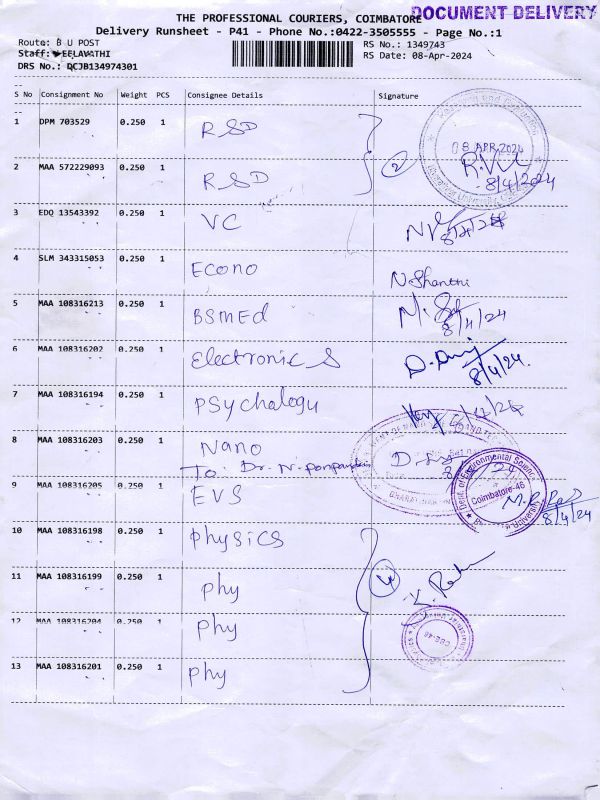 THE PROFESSIONAL COURIERS, COIMBATORE
DOCUMENT DELIVERY
Delivery Runsheet - P41 - Phone No.:0422-3505555 - Page No.:1
Route: B U POST
RS No.: 1349743
Staff: EELAVATHI
RS Date: 08-Apr-2024
DRS No.: QCJB134974301
S No Consignment No Weight PCS Consignee Details Signature
1 DPM 703529 0.250 1 RSD
08 APR 2024
2 MAA 572229093 0.250 1 RSD 2 8/4/2024
3 EDQ 13543392 0.250 1 VC
4 SLM 343315053 0.250 1 Econo N Shanthi
5 MAA 108316213 0.250 1 BSMEd 8/4/24
6 MAA 108316202 0.250 1 Electronic S 8/4/24.
7 MAA 108316194 0.250 1 PSychalogy
8 MAA 108316203 0.250 1 Nano
To: Dr. N.
9 MAA 108316205 0.250 1 EVS
Dept. of Environmental Science
Coimbatore-46
8/4/24
10 MAA 108316198 0.250 1 physics
11 MAA 108316199 0.250 1 phy 4
12 MAA 108316204 0.250 1 phy
CBE-46
13 MAA 108316201 0.250 1 phy